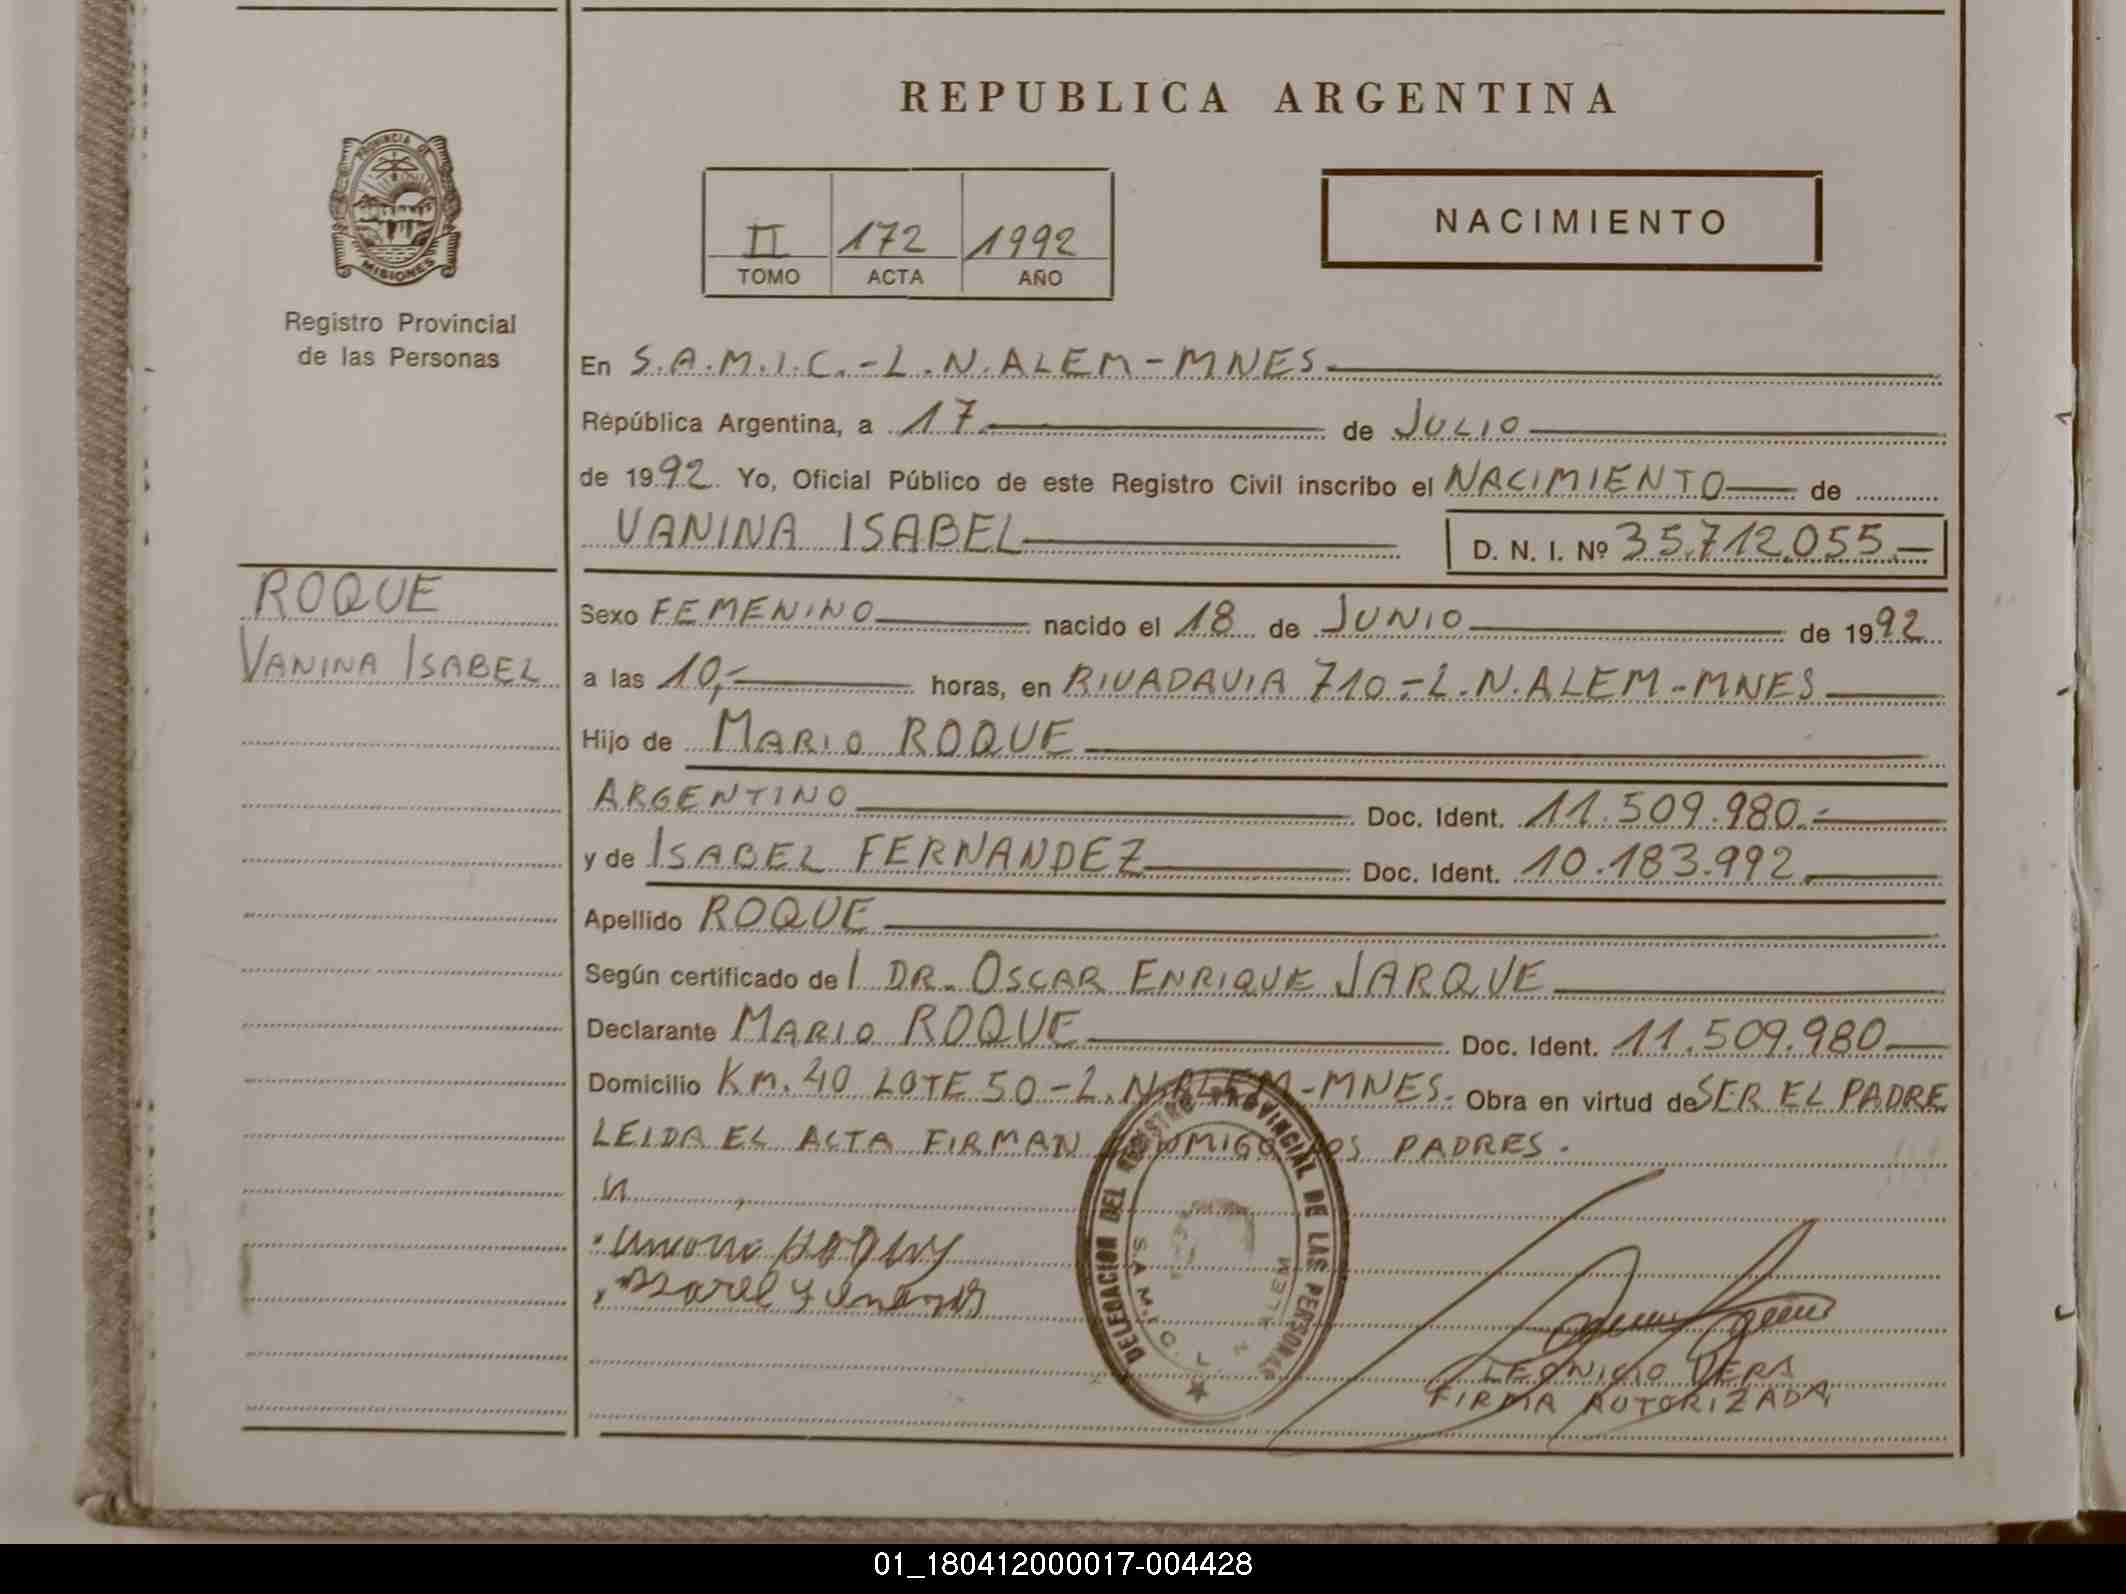 REPUBLICA ARGENTINA
PROVINCIA DE
MISIONES
Registro Provincial
de las Personas
II 172 1992
TOMO ACTA AÑO
NACIMIENTO
En S.A.M.I.C.-L.N.ALEM-MNES
República Argentina, a 17 de JULIO
de 1992. Yo, Oficial Público de este Registro Civil inscribo el NACIMIENTO de
VANINA ISABEL D. N. I. Nº 35.712.055.-
ROQUE
VANINA ISABEL
Sexo FEMENINO nacido el 18 de JUNIO de 1992
a las 10,- horas, en RIVADAVIA 710.-L.N.ALEM-MNES
Hijo de MARIO ROQUE
ARGENTINO Doc. Ident. 11.509.980.-
y de ISABEL FERNANDEZ Doc. Ident. 10.183.992
Apellido ROQUE
Según certificado de l DR. OSCAR ENRIQUE JARQUE
Declarante MARIO ROQUE Doc. Ident. 11.509.980
Domicilio KM. 40 LOTE 50-L.N.ALEM-MNES. Obra en virtud de SER EL PADRE
LEIDA EL ACTA FIRMAN CONMIGO LOS PADRES.
DELEGACION DEL REGISTRO PROVINCIAL DE LAS PERSONAS
S.A.M.I.C. L. N. ALEM
FIRMA AUTORIZADA
01_180412000017-004428